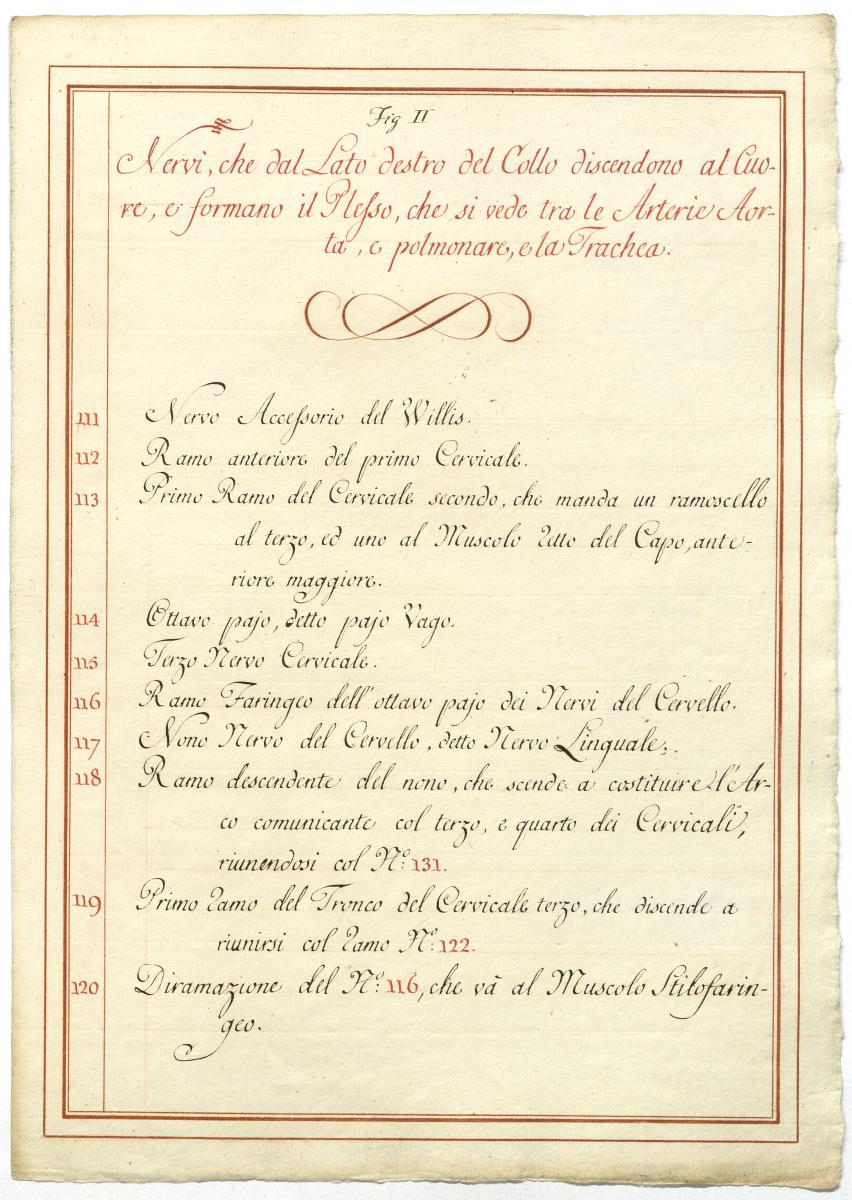 Fig II
Nervi, che dal Lato destro del Collo discendono al Cuo-
re, e formano il Plesso, che si vede tra le Arterie Aor-
ta, e polmonare, e la Trachea.
111 Nervo Accessorio del Willis.
112 Ramo anteriore del primo Cervicale.
113 Primo Ramo del Cervicale secondo, che manda un ramoscello
al terzo, ed uno al Muscolo Retto del Capo, ante-
riore maggiore.
114 Ottavo pajo, detto pajo Vago.
115 Terzo Nervo Cervicale.
116 Ramo Faringeo dell'ottavo pajo dei Nervi del Cervello.
117 Nono Nervo del Cervello, detto Nervo Linguale.
118 Ramo descendente del nono, che scende a costituire l'Ar-
co comunicante col terzo, e quarto dei Cervicali,
riunendosi col Nº: 131.
119 Primo Ramo del Tronco del Cervicale terzo, che discende a
riunirsi col Ramo Nº: 122.
120 Diramazione del Nº: 116, che và al Muscolo Stilofarin-
geo.